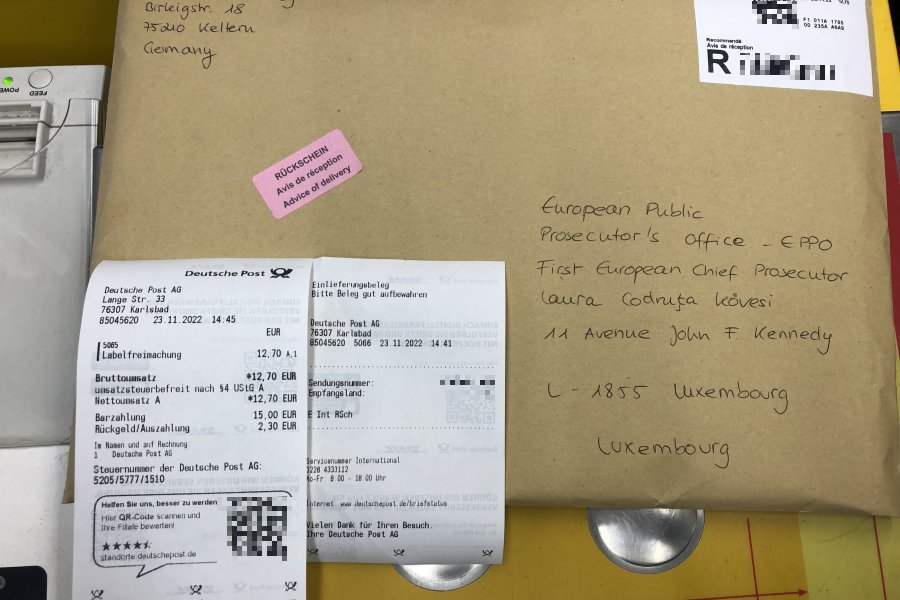 Birleigstr. 18
75210 Keltern
Germany
F1 011A 1785
00 235A A6A9
Recommandé
Avis de réception
R
RÜCKSCHEIN
Avis de réception
Advice of delivery
European Public
Prosecutor's Office - EPPO
First European Chief Prosecutor
Laura Codruța Kövesi
11 Avenue John F. Kennedy
L - 1855 Luxembourg
Luxembourg
POWER
FEED
Deutsche Post
Deutsche Post AG
Lange Str. 33
76307 Karlsbad
85045620 23.11.2022 14:45
EUR
5065
Labelfreimachung 12,70 A,1
Bruttoumsatz *12,70 EUR
umsatzsteuerbefreit nach §4 UStG A
Nettoumsatz A *12,70 EUR
Barzahlung 15,00 EUR
Rückgeld/Auszahlung 2,30 EUR
Im Namen und auf Rechnung
1 Deutsche Post AG
Steuernummer der Deutsche Post AG:
5205/5777/1510
Helfen Sie uns, besser zu werden
Hier QR-Code scannen und
Ihre Filiale bewerten!
standorte.deutschepost.de
Einlieferungsbeleg
Bitte Beleg gut aufbewahren
Deutsche Post AG
76307 Karlsbad
85045620 5066 23.11.2022 14.41
Sendungsnummer:
Empfangsland:
E Int RSch
Servicenummer International
0228 4333112
Mo-Fr 8:00 - 18:00 Uhr
Internet: www.deutschepost.de/briefstatus
Vielen Dank für Ihren Besuch.
Ihre Deutsche Post AG